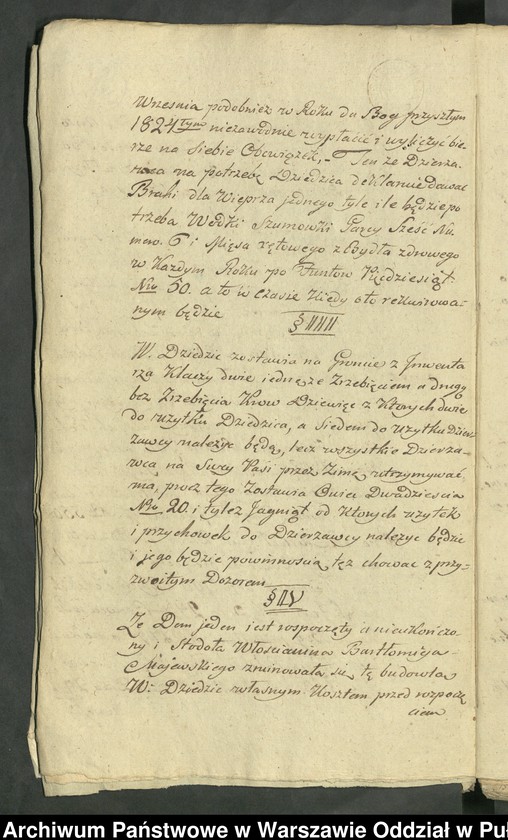 Wrzesnia podobniez w Roku da Bog przyszłym
1824 Tym niezawodnie wypłacić i wyliczyć bie-
rze na siebie Obowiązek, - Ten że Dzierża
wca na potrzebę Dziedzica deklaruie dawać
Brahi dla Wieprza jednego tyle ile będzie po
trzeba Wodki Szumowki Garcy Sześć Nu
mero. 6 i Mięsa zętowego z bydła zdrowego
w Każdym Roku po Funtow Pięćdziesiąt
Nro 50. a to w Czasie kiedy o to rekwirowa-
nym będzie
§ III
W. Dziedzic zostawia na Gruncie z Inwenta
rza Klaczy dwie iedne ze Zrzebięciem a drugą
bez Zrzebięcia Krow Dziewięć z Ktorych dwie
do użytku Dziedzica, a Siedem do użytku Dzier
zawcy należyć będą, lecz wszystkie Dzierża-
wca na Swey Pasi przez Zimę utrzymywać
ma, procz tego Zostawia Owiec Dwadzieścia
Nro. 20 i tyleż Jagniąt od Ktorych użytek
i przychowek do Dzierżawcy należyć będzie
i jego będzie powinnością też chować z przy-
zwoitym Dozorem
§ IV
Że Dom jeden iest rozpoczęty a nieukończo
ny i Stodoła Włościanina Bartłomieja
Majewskiego zruinowała się tę budowlą
W: Dziedzic własnym Kosztem przed rozpoczę
ciem
Archiwum Państwowe w Warszawie Oddział w Pu